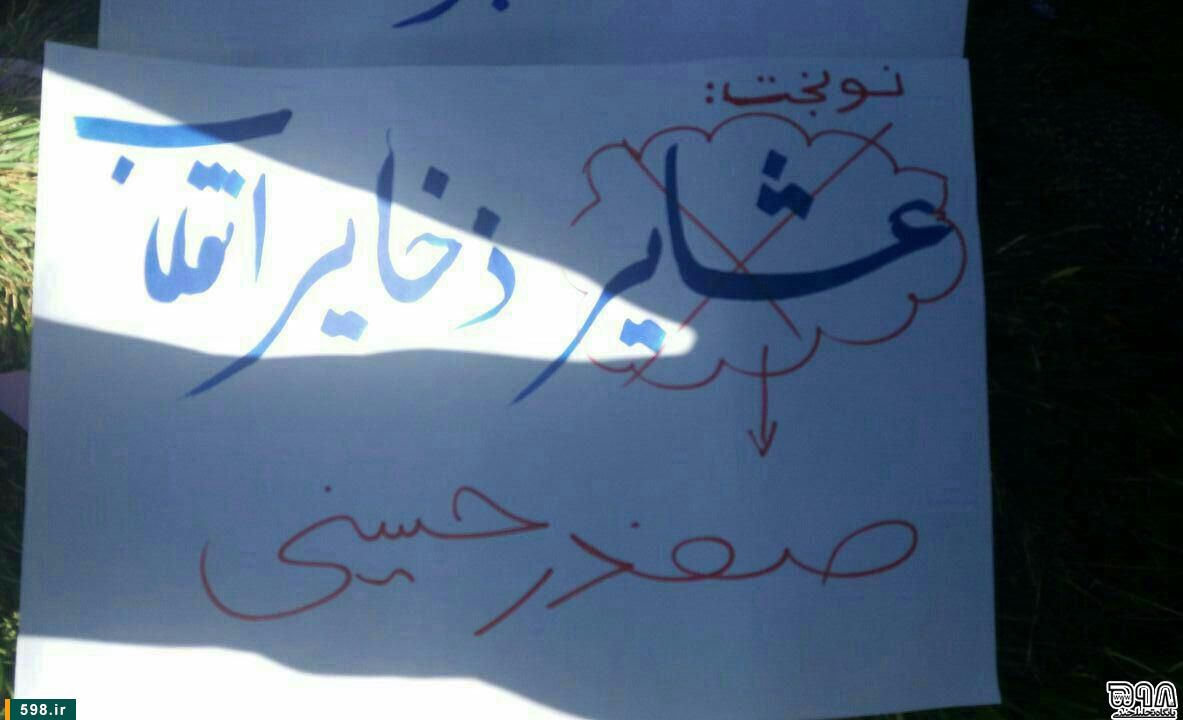 نوبخت:
عشایر ذخایر انقلاب
صفدر حسینی
598.ir